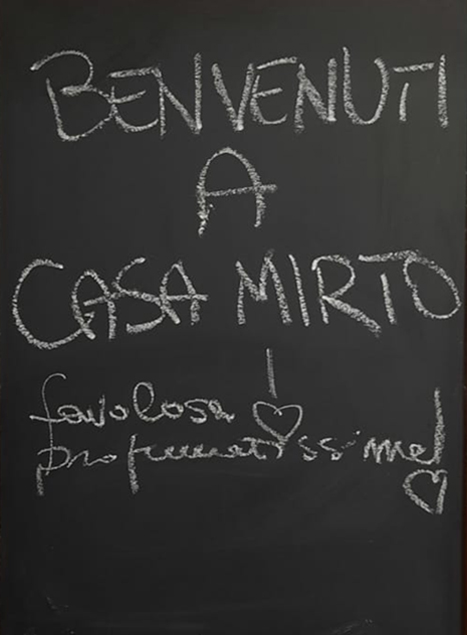 BENVENUTI
A
CASA MIRTO
favolosa! ♡
profumatissima! ♡